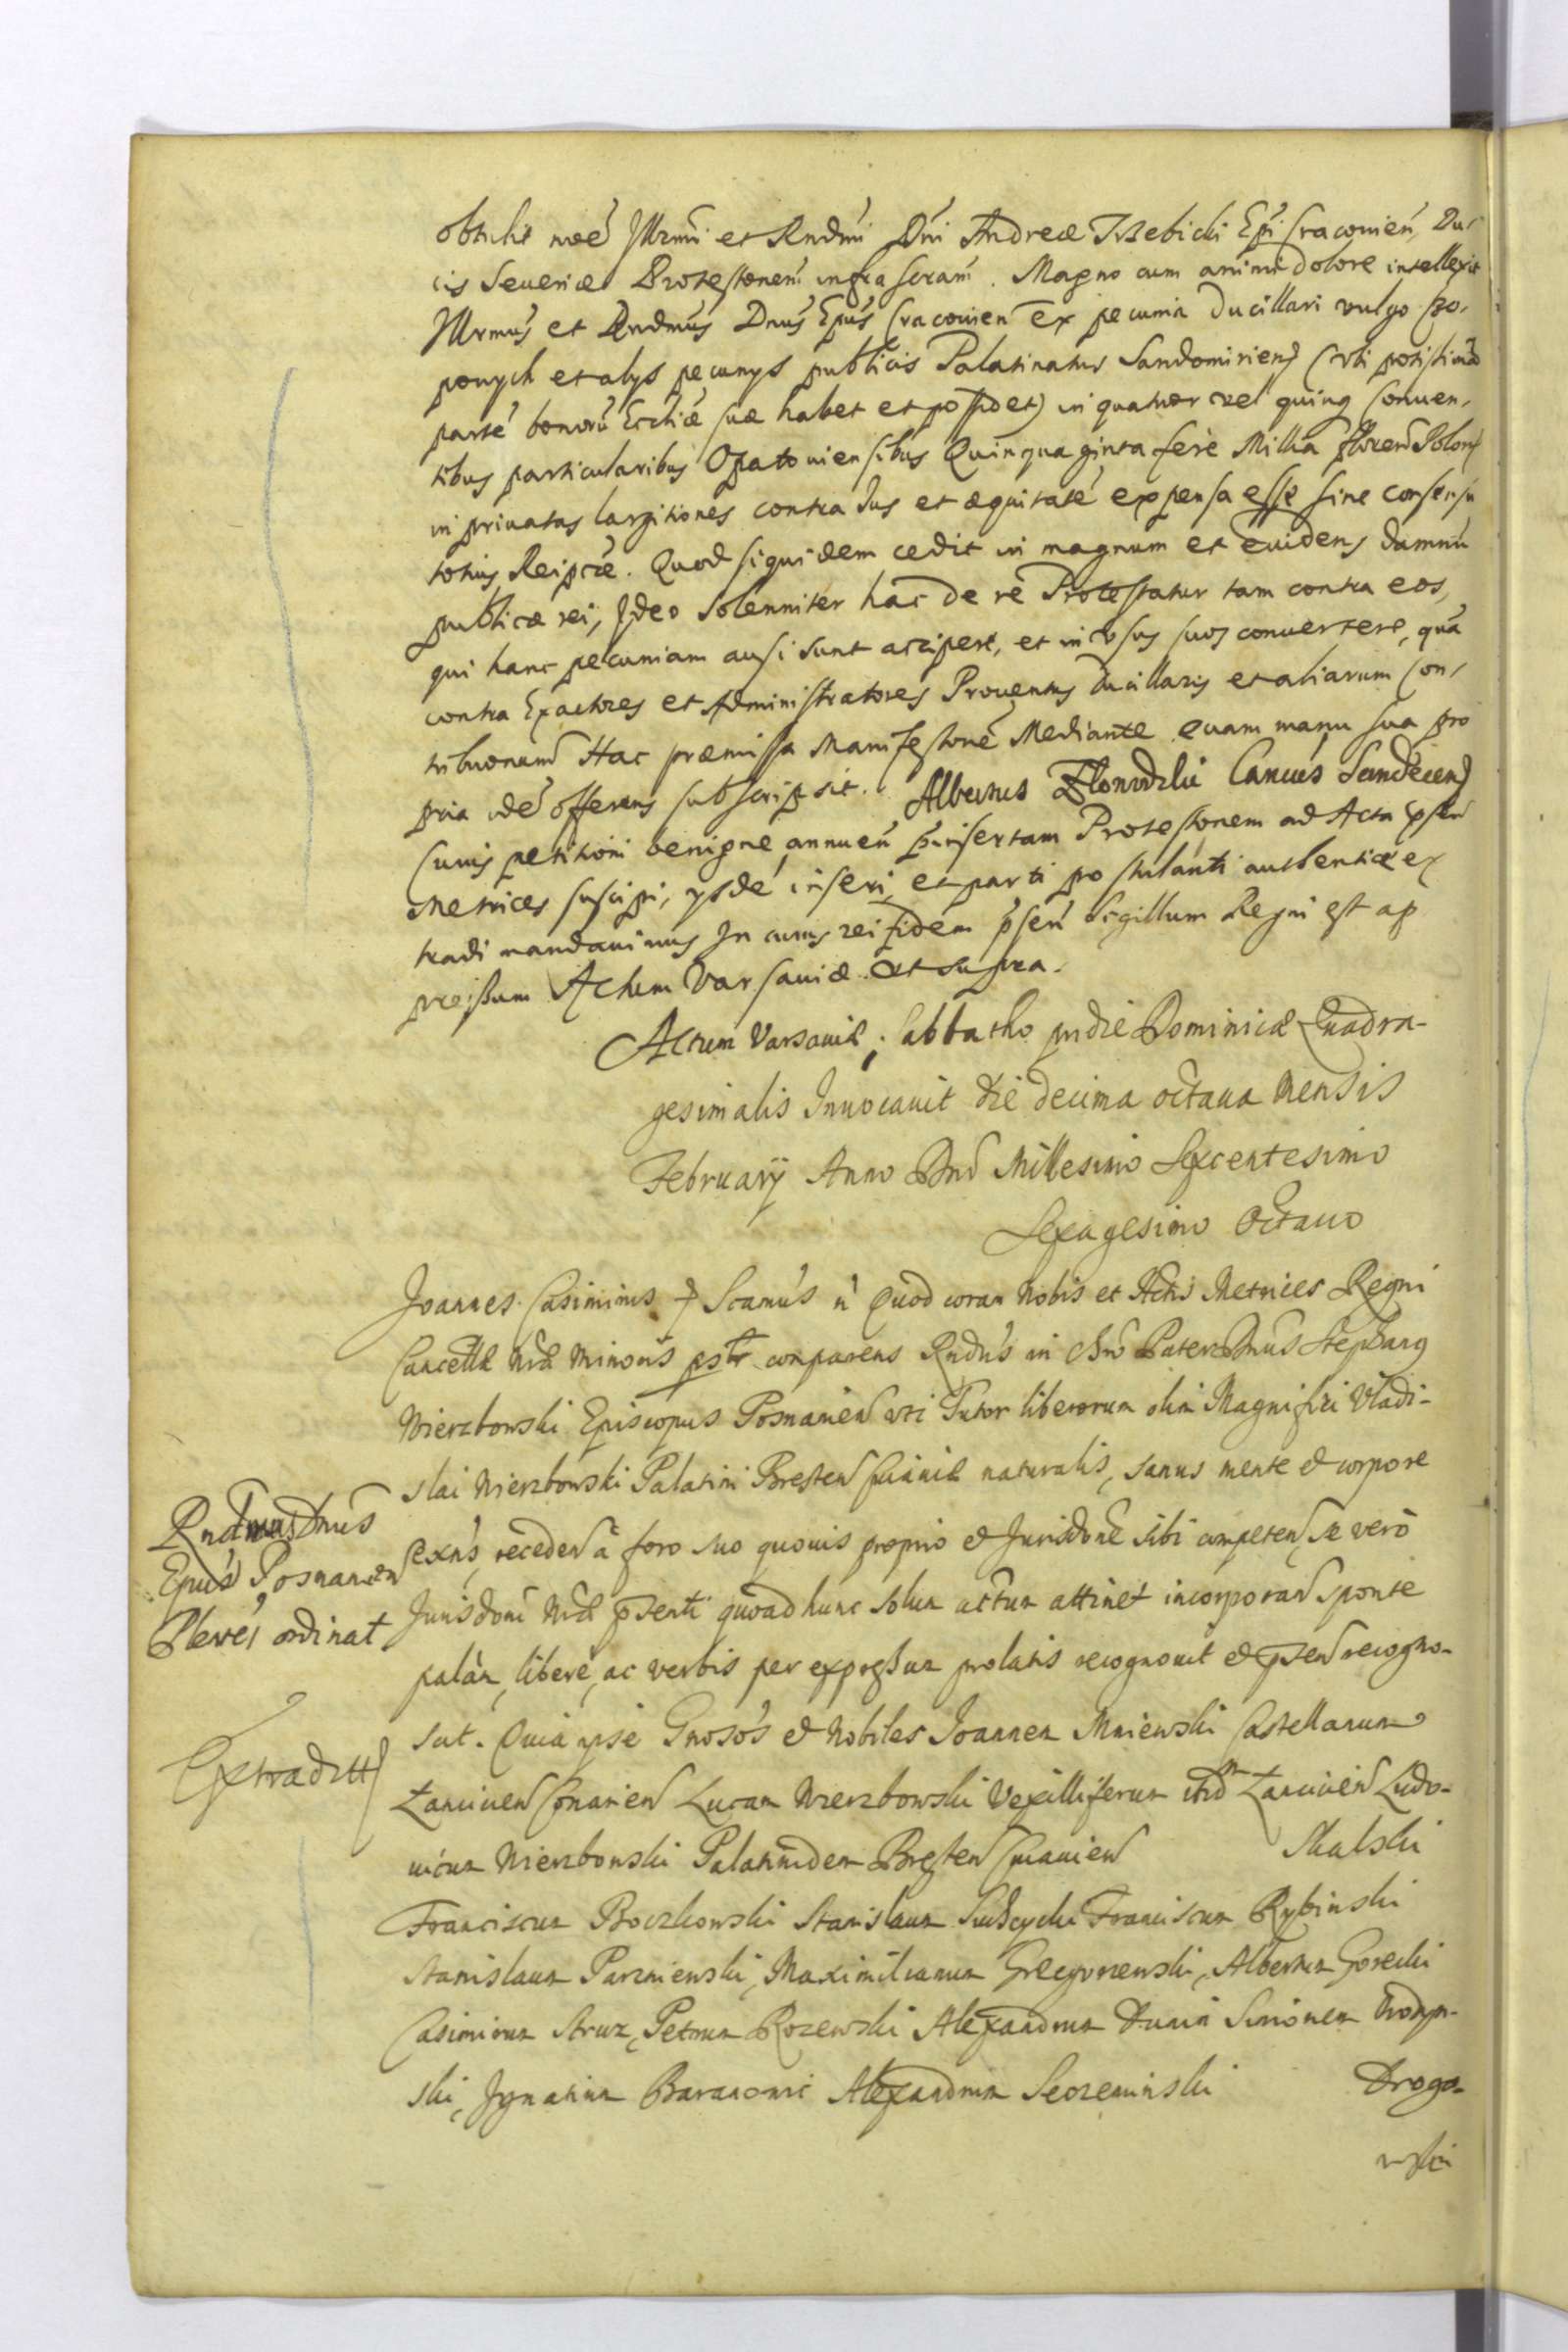 obtulit noe Illrmi et Rndmi Dni Andreæ Trzebicki Epi Cracouien, Du-
cis Seueriæ Protestonem infrascram. Magno cum animi dolore intellexit
Illrmus et Rndmus Dnus Epus Cracouien ex pecunia Ducillari vulgo Czo-
powych et alys pecunys publicis Palatinatus Sandomirien (vbi potissimã
parté bonorũ Eccliæ suæ habet et possidet) in quatuor vel quinq Conuen-
tibus particularibus Opatouiensibus Quinquaginta ferè Millia floren Polon
in priuatas largitiones contra Jus et æquitaté expensa esse sine consensu
totius Reipcæ. Quod siquidem cedit in magnum et euidens damnũ
publicæ rei, Ideo Solenniter hac de re Protestatur tam contra eos,
qui hanc pecuniam ausi sunt accipere, et in vsus suos conuertere, quã
contra Exactores et Administratores Prouentus Ducillaris et aliarum Con-
tribuonum Hac præmissa Manifestone Mediante quam manu sua pro
pria idé offerens subscripsit. Albertus Cancus Sandecen
Cuius petitioni benigne annuen pinsertam Protestonem ad Acta psen
Metrices suscipi, ysdé inseri, et parti postulanti authenticé ex
tradi mandauimus In cuius rei fidem psen Sigillum Regni est ap
pressum Actum Varsauiæ vt supra.
Actum Varsauiæ, Sabbatho pridie Dominicæ Quadra-
gesimalis Inuocauit die decima octaua Mensis
February Anno Dni Millesimo Sexcentesimo
Sexagesimo Octauo
Joannes Casimirus Scamus n Quod coram Nobis et Actis Metrices Regni
Cancellæ Nræ Minoris pslr comparens Rndus in Chro Pater Dnus Stephanus
Wierzbowski Episcopus Posnanien vti Tutor liberorum olim Magnifici Vladi-
slai Wierzbowski Palatini Bresten Cuiauiæ naturalis, sanus mente & corpore
exns, receden à foro suo quouis proprio & Jurisdone sibi competen, se verò
Jurisdoni Nræ psenti quoad hunc solum actum attinet incorporan sponte
palàm, liberè, ac verbis per expressum prolatis recognouit & psen recogno-
scit. Quia ipse Gnosos & Nobiles Joannem Mniewski Castellanum
Conarien Lucam Wierzbowski Vexilliferum Ludo-
uicum Wierzbowski Palatinidem Bresten Cuiauien Skalski
Franciscum Boczkowski Stanislaum Suchcycki Franciscum Rybinski
Stanislaum Parzniewski, Maximilianum Gregorzewski, Albertum Gorecki
Casimirum Strus, Petrum Rozewski Alexandrum Dunin Simonem
ski, Ignatium Baranowic Alexandrum Drogo-
wski
Rndmus Dnus
Epus Posnanien
Pleres ordinat
Extradittt